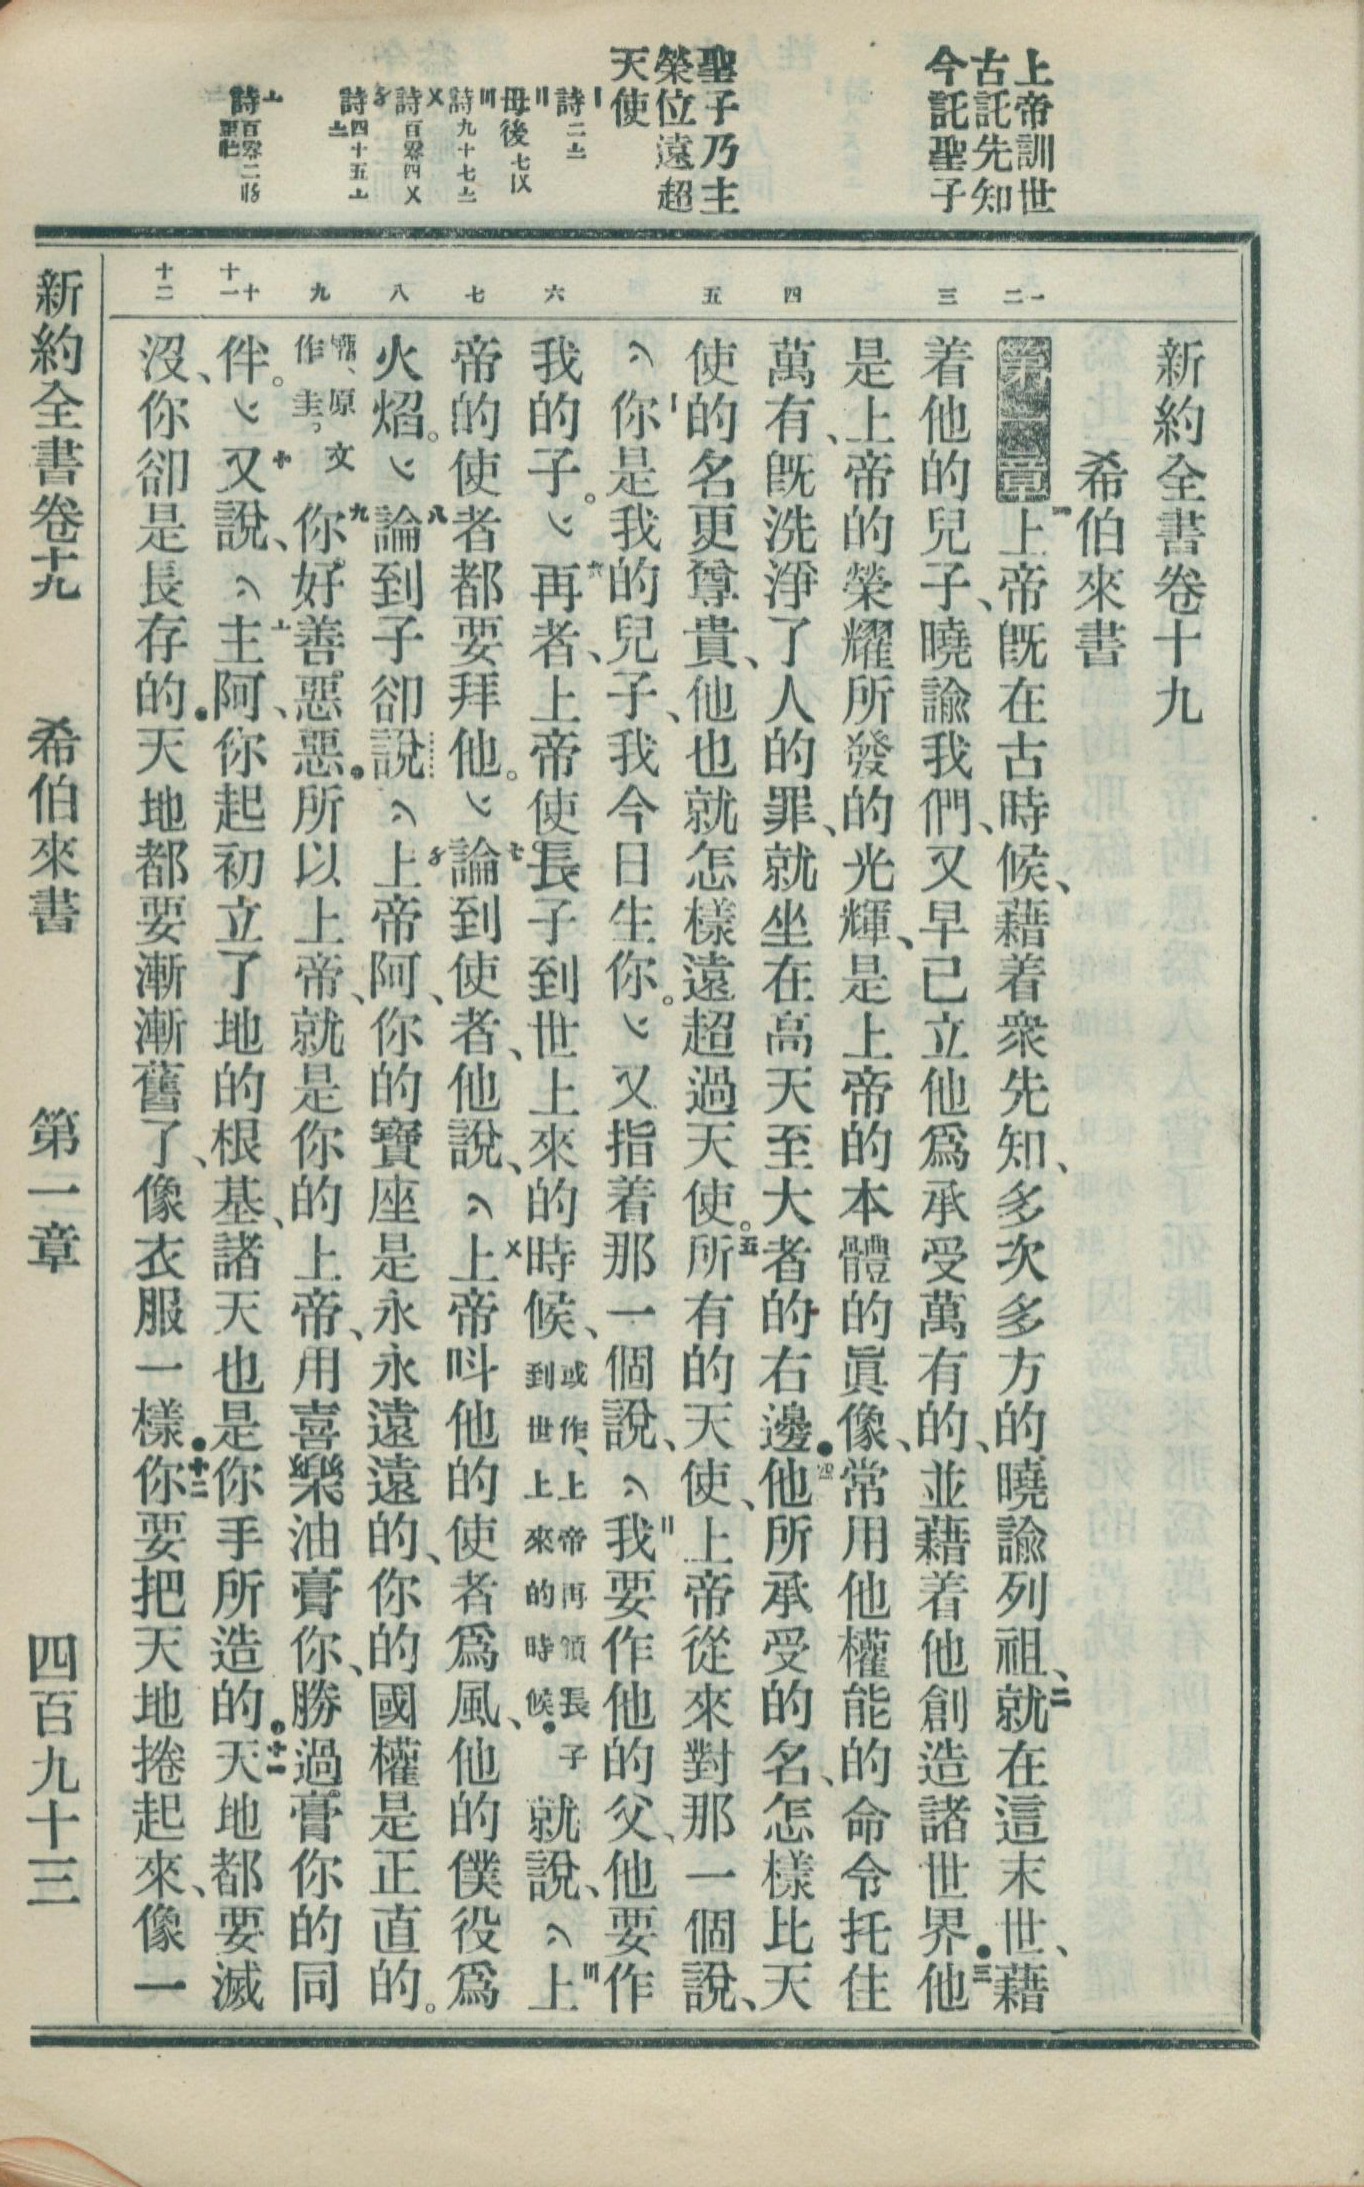 上帝訓世
古託先知
今託聖子
聖子乃主
榮位遠超
天使
詩二〧
母後七〤
詩九十七〧
詩百零四〤
詩四十五〦
詩百零二
一
二
三
四
五
六
七
八
九
十
十一
十二
新約全書卷十九
希伯來書
第一章 一上帝旣在古時候、藉着衆先知、多次多方的曉諭列祖、二就在這末世、藉
着他的兒子、曉諭我們、又早已立他爲承受萬有的、並藉着他創造諸世界●三他
是上帝的榮耀所發的光輝、是上帝的本體的眞像、常用他權能的命令托住
萬有、旣洗淨了人的罪、就坐在高天至大者的右邊●四他所承受的名、怎樣比天
使的名更尊貴、他也就怎樣遠超過天使。五所有的天使、上帝從來對那一個說、
〽〡你是我的兒子、我今日生你。〽又指着那一個說、〽〢我要作他的父、他要作
我的子。〽六再者、上帝使長子到世上來的時候、或作、上帝再領長子到世上來的時候●就說、〽〣上
帝的使者都要拜他。〽七論到使者、他說、〽〤上帝呌他的使者爲風、他的僕役爲
火焰。〽八論到子卻說〽〥上帝阿、你的寶座是永永遠遠的、你的國權是正直的。
原文作主、九你好善惡惡●所以上帝、就是你的上帝、用喜樂油膏你、勝過膏你的同
伴。〽十又說、〽〦主阿、你起初立了地的根基、諸天也是你手所造的●十一天地都要滅
沒、你卻是長存的●天地都要漸漸舊了、像衣服一樣●十二你要把天地捲起來、像一
新約全書卷十九 希伯來書 第一章 四百九十三